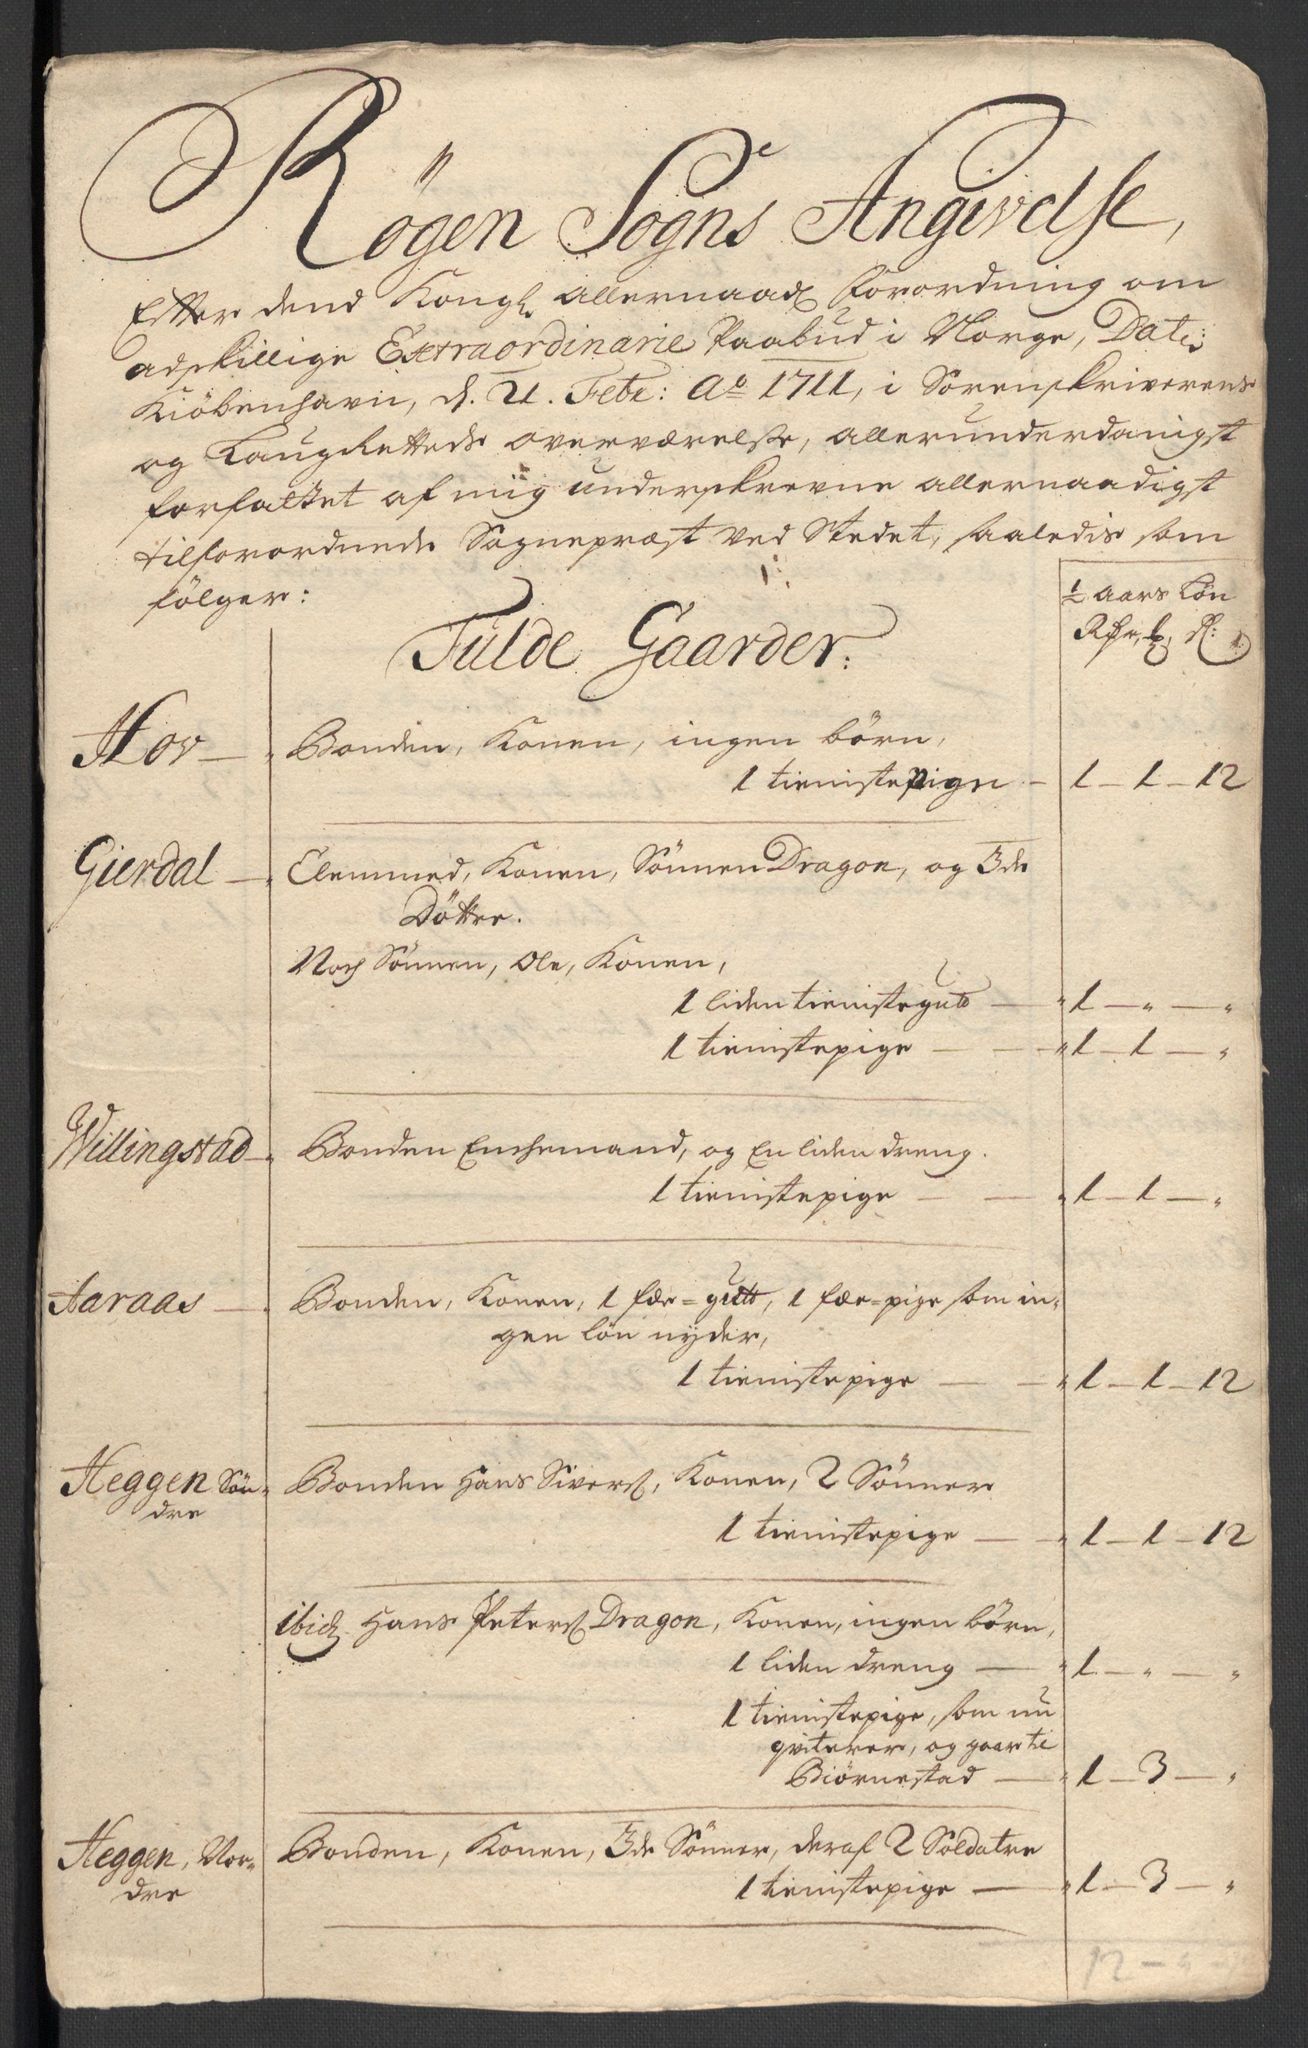 Rögen Sogns Angivelse,
Efter dend Kongl. allernaad. forordning om
adskillige Extraordinarie Paabud i Norge, Dat:
Kiöbenhavn, d. 21. Febr: Ao 1711, i Sorenskriverens
og Laugretteds overværelse, allerunderdanigst
forfattet af miig underskrevne allernaadigst
tilforordnede Sognepræst ved Stedet, saaledis som
fölger:
½ aars Lön
Fulde Gaarder.
Hov — Bonden, Konen, ingen börn,
1 tienistepige — 1 — 1 — 12
Gierdal — Clemmed, Konen, Sönnen Dragon, og 3de
Döttre.
Noch Sönnen, Ole, Konen,
1 liden tienistegutt — 1 — " — "
1 tienistepige — 1 — 1 — "
Willingstad — Bonden Enchemand, og En liden dreng.
1 tienistepige — 1 — 1 — "
Aaraas — Bonden, Konen, 1 fær=gutt, 1 fær=pige som in-
gen lön nyder,
1 tienistepige — 1 — 1 — 12
Heggen Sön- Bonden Hans Sivers, Konen, 2 Sönner
dre
1 tienistepige — 1 — 1 — 12
ibid. Hans Peters Dragon, Konen, ingen börn,
1 liden dreng — 1 — " — "
1 tienistepige, som nu
qviterer, og gaar til
Biörnestad — 1 — 3 — "
Heggen, Nor- Bonden, Konen, 3de Sönner, deraf 2 Soldatre
dre
1 tienistepige — 1 — 3 — "